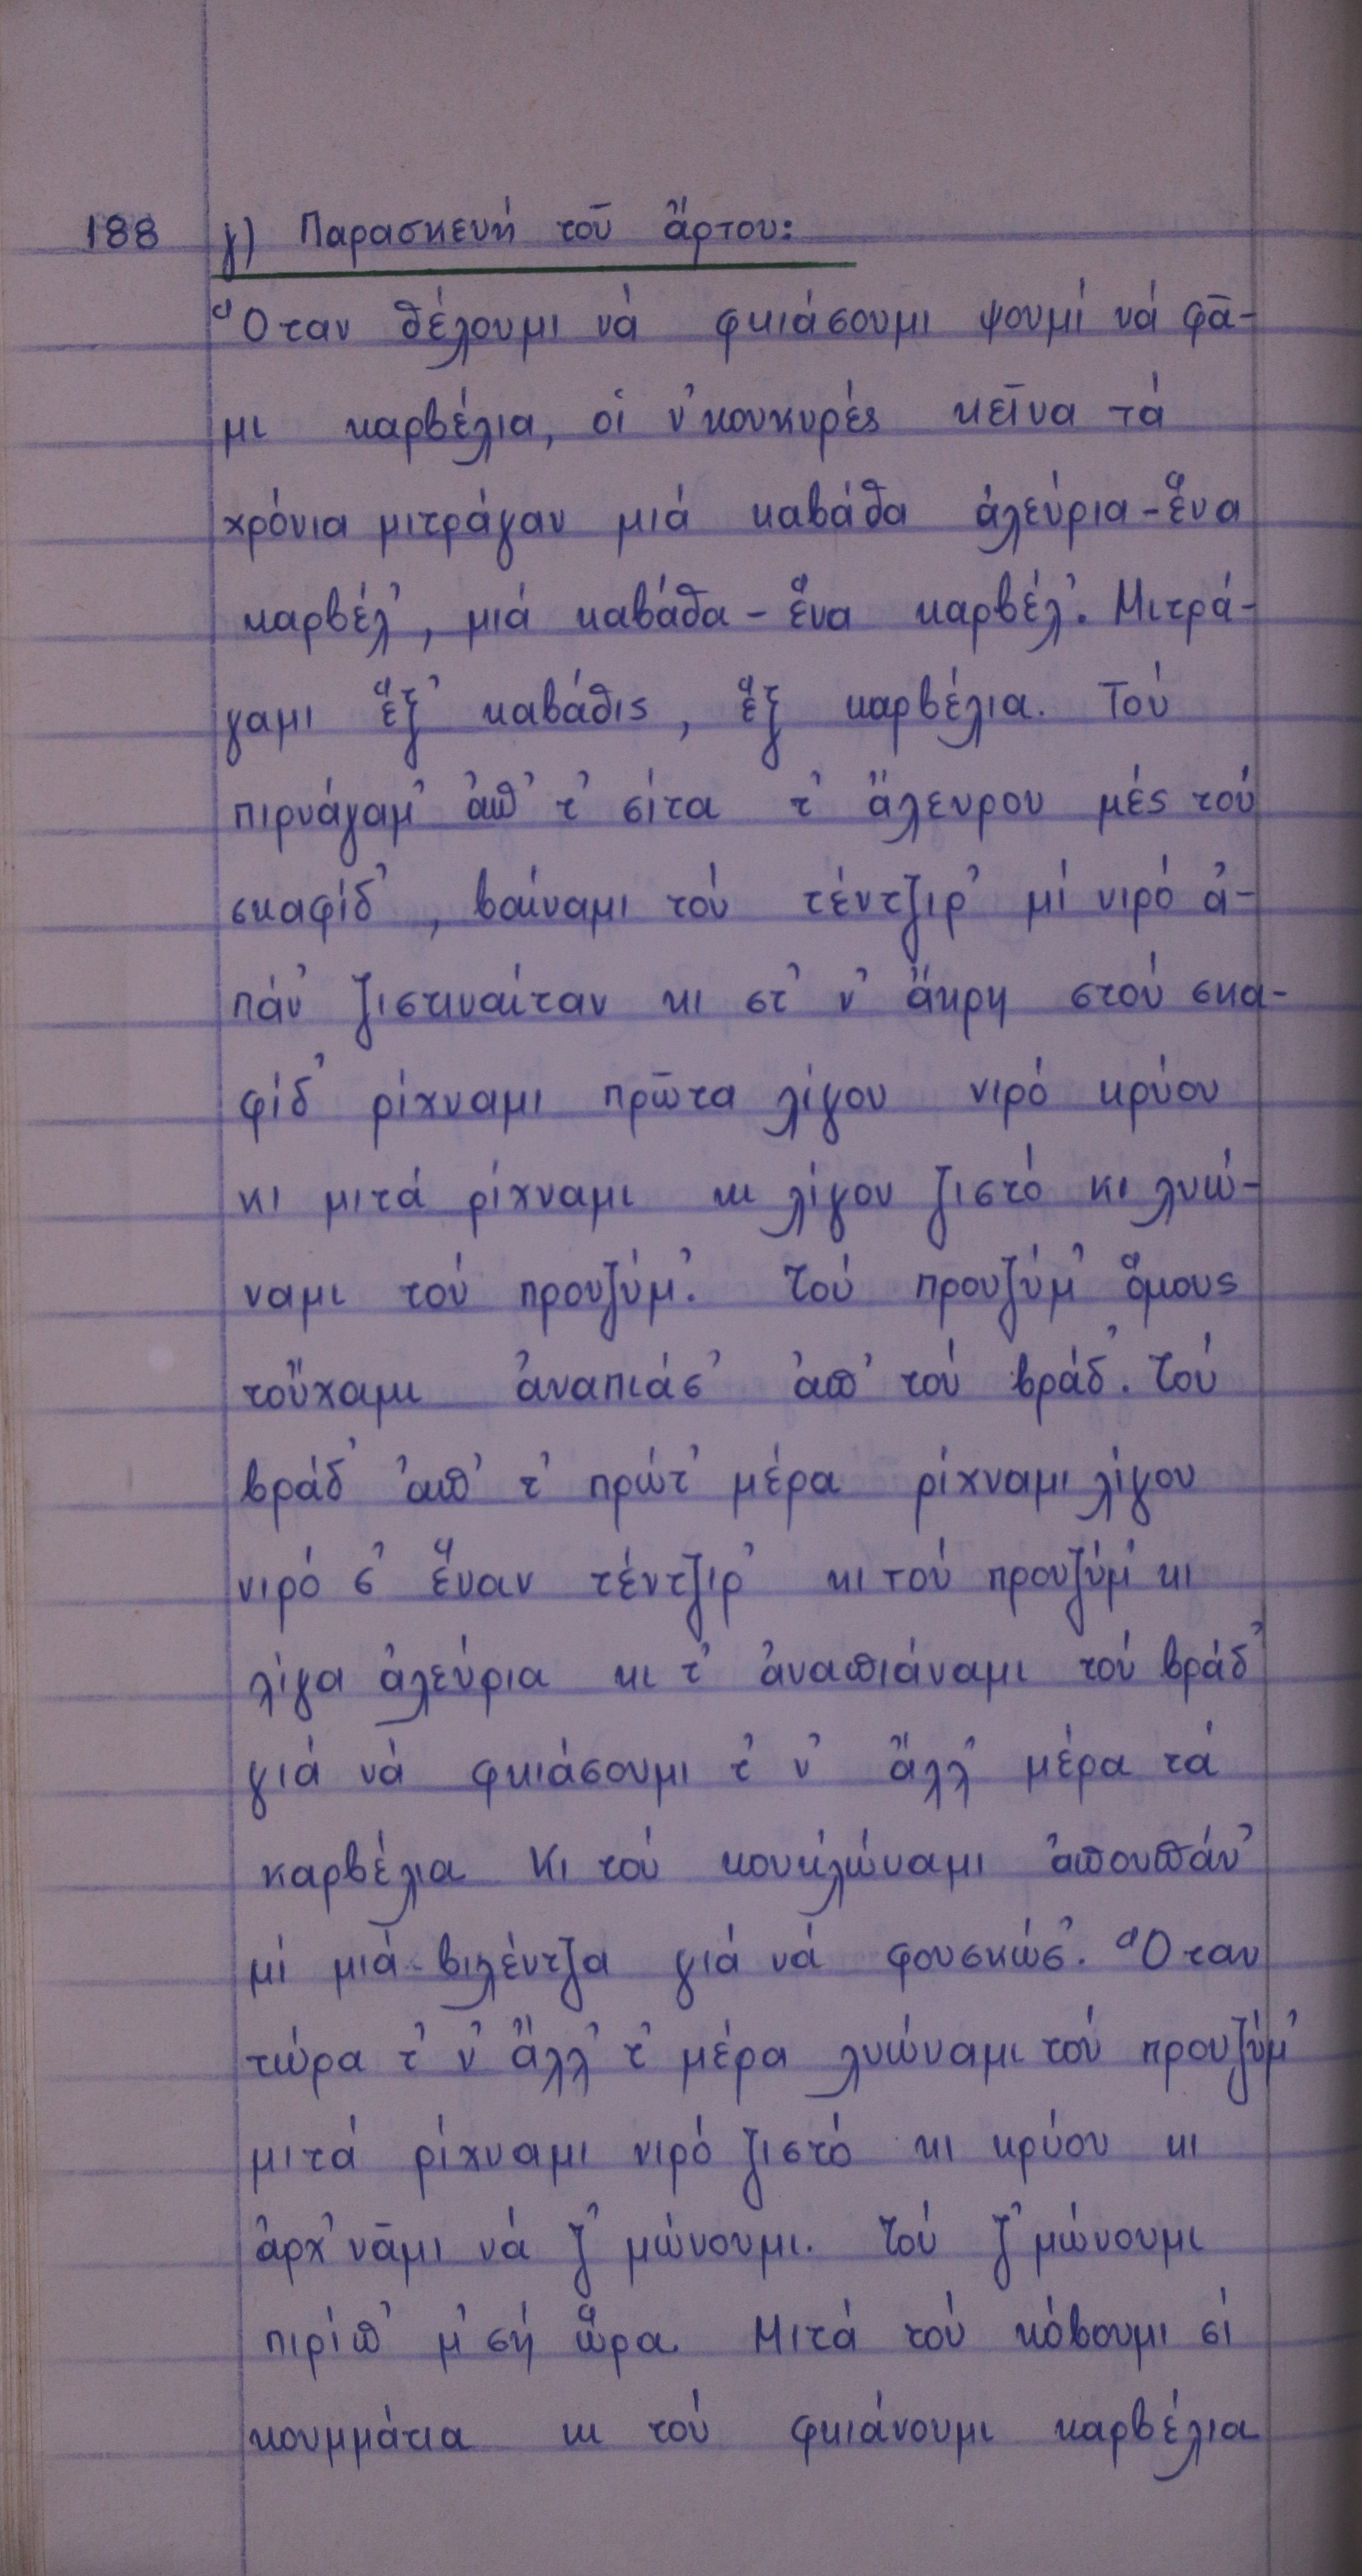 188 γ) Παρασκευή τοῦ ἄρτου:
Ὅταν θέλουμι νά φκιάσουμι ψουμί νά φᾶ-
μι καρβέλια, οἱ ν᾿κουκυρές κεῖνα τά
χρόνια μιτράγαν μιά καβάθα ἀλεύρια - ἕνα
καρβέλ᾿, μιά καβάθα - ἕνα καρβέλ᾿. Μιτρά-
γαμι ἕξ᾿ καβάθις, ἕξ καρβέλια. Τού
πιρνάγαμ᾿ ἀπ᾿ τ᾿ σίτα τ᾿ ἄλευρου μές τού
σκαφίδ᾿, βαίναμι τού τέντζιρ᾿ μί νιρό ἀ-
πάν᾿ ζιστιναίταν κι στ᾿ ν᾿ ἄκρη στού σκα-
φίδ᾿ ρίχναμι πρῶτα λίγου νιρό κρύου
κι μιτά ρίχναμι κι λίγου ζιστό κι λυώ-
ναμι τού προυζύμ᾿. Τού προυζύμ᾿ ὅμους
τοὔχαμι ἀναπιάσ᾿ ἀπ᾿ τού βράδ᾿. Τού
βράδ᾿ ἀπ᾿ τ᾿ πρώτ᾿ μέρα ρίχναμι λίγου
νιρό σ᾿ ἕναν τέντζιρ᾿ κι τού προυζύμ᾿ κι
λίγα ἀλεύρια κι τ᾿ ἀναπιάναμι τού βράδ᾿
γιά νά φκιάσουμι τ᾿ ν᾿ ἄλλ᾿ μέρα τά
καρβέλια κι τού κουκλώναμι ἀπουπάν᾿
μί μιά βιλέντζα γιά νά φουσκώσ᾿. Ὅταν
τώρα τ᾿ ν᾿ ἄλλ᾿ τ᾿ μέρα λυώναμι τού προυζύμ᾿
μιτά ρίχναμι νιρό ζιστό κι κρύου κι
ἀρχ᾿νᾶμι νά ζ᾿μώνουμι. Τού ζ᾿μώνουμι
πιρίπ᾿ μ᾿σή ὥρα. Μιτά τού κόβουμι σί
κουμμάτια κι τού φκιάνουμι καρβέλια